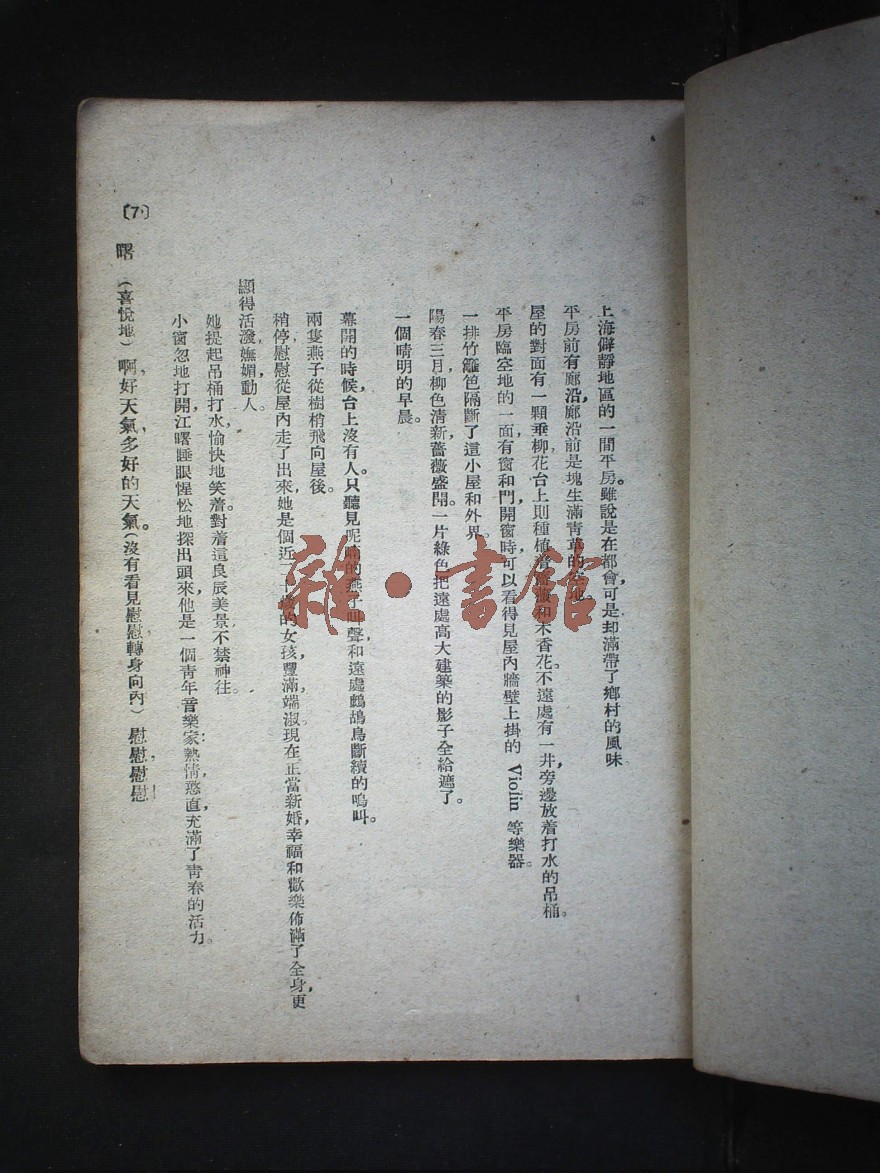 上海僻靜地區的一間平房。雖說是在都會，可是却滿帶了鄉村的風味
平房前有廊沿，廊沿前是塊生滿青草的空地。
屋的對面有一顆垂柳，花台上則種植着薔薇和木香花。不遠處有一井，旁邊放着打水的吊桶。
平房臨空地的一面有窗和門，開窗時可以看得見屋內牆壁上掛的 Violin 等樂器。
一排竹籬笆隔斷了這小屋和外界。
陽春三月，柳色清新，薔薇盛開，一片綠色把遠處高大建築的影子全給遮了。
一個晴明的早晨。
幕開的時候，台上沒有人。只聽見呢喃的燕子叫聲，和遠處鷓鴣鳥斷續的鳴叫。
兩隻燕子從樹梢飛向屋後。
稍停，慰慰從屋內走了出來，她是個近二十歲的女孩，豐滿端淑，現在正當新婚，幸福和歡樂佈滿了全身，更
顯得活潑，嫵媚，動人。
她提起吊桶打水，愉快地笑着。對着這良辰美景不禁神往。
小窗忽地打開，江曙睡眼惺忪地探出頭來，他是一個青年音樂家，熱情，憨直，充滿了青春的活力。
曙 （喜悅地）啊，好天氣，多好的天氣。（沒有看見慰慰，轉身向內） 慰慰，慰慰！
〔7〕
雜·書館